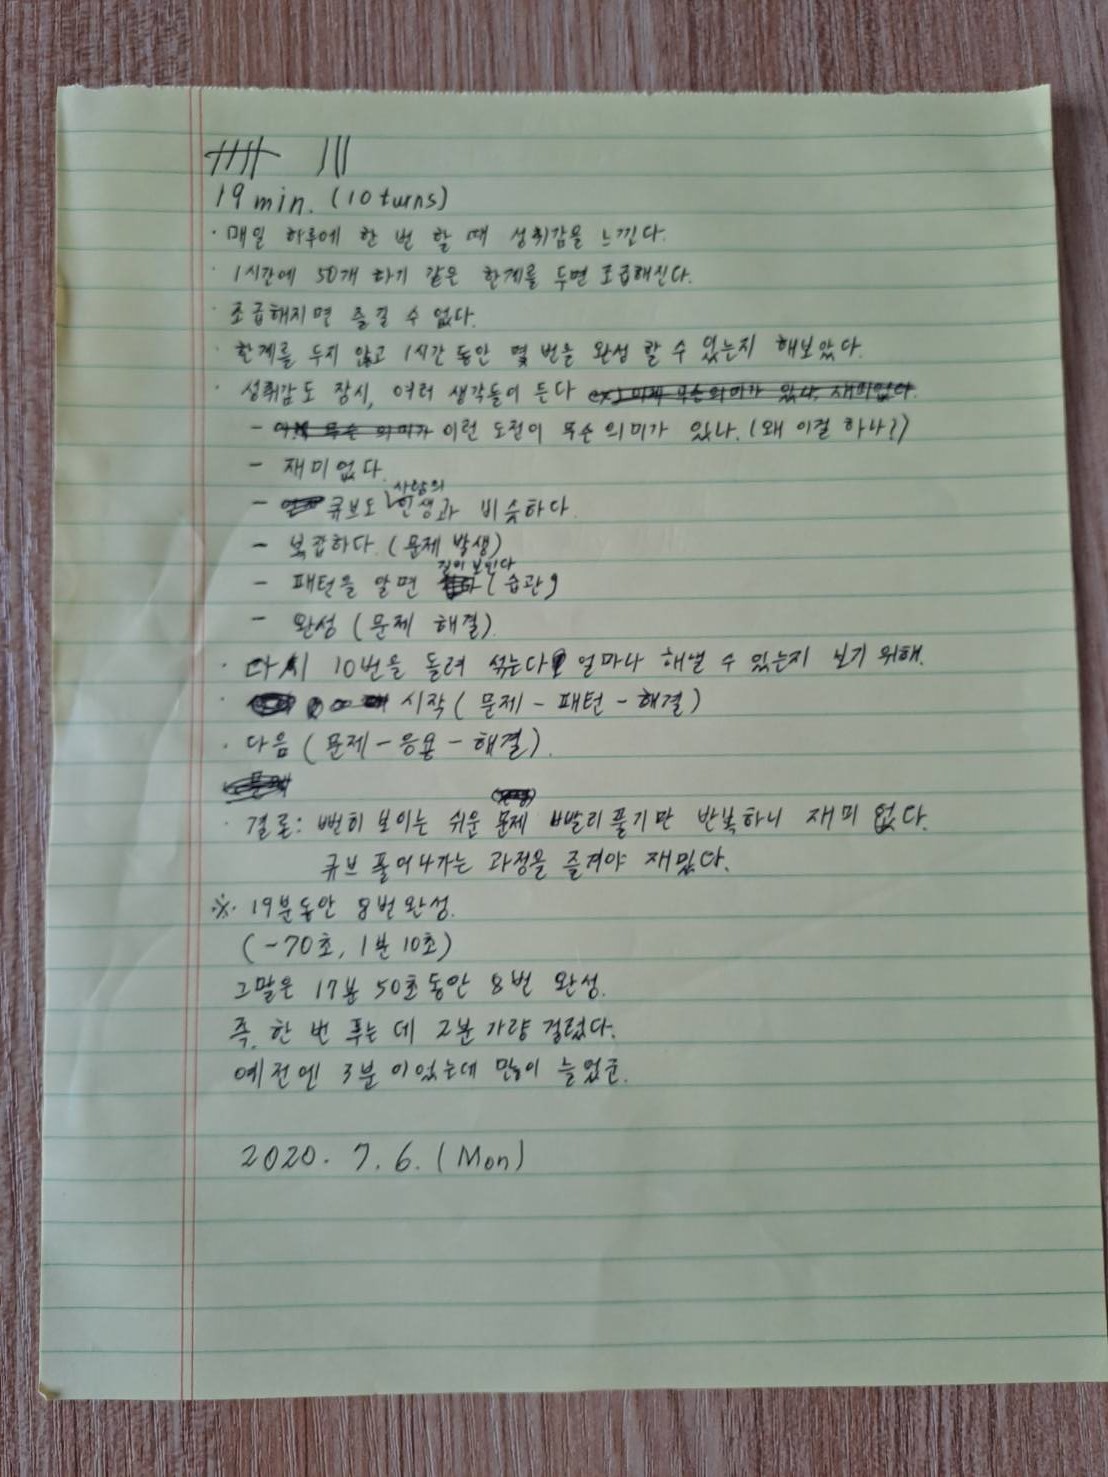 19 min. (10 turns)
· 매일 하루에 한 번 할 때 성취감을 느낀다.
· 1시간에 50개 하기 같은 한계를 두면 조급해진다.
· 조급해지면 즐길 수 없다.
· 한계를 두지 않고 1시간 동안 몇 번을 완성 할 수 있는지 해보았다.
· 성취감도 잠시, 여러 생각들이 든다 ex) 이게 무슨 의미가 있나, 재미없다.
- 무슨 의미가 이런 도전이 무슨 의미가 있나. (왜 이걸 하나?)
- 재미없다.
- 큐브도 사람의 인생과 비슷하다.
- 복잡하다. (문제 발생)
- 패턴을 알면 길이 보인다 (습관)
- 완성 (문제 해결)
· 다시 10번을 돌려 섞는다 얼마나 해낼 수 있는지 보기 위해.
· 시작 (문제 - 패턴 - 해결)
· 다음 (문제 - 응용 - 해결).
· 결론: 뻔히 보이는 쉬운 문제 빨리 풀기만 반복하니 재미 없다.
큐브 풀어나가는 과정을 즐겨야 재밌다.
※. 19분동안 8번 완성.
(-70초, 1분 10초)
그말은 17분 50초 동안 8번 완성.
즉, 한 번 푸는 데 2분 가량 걸렸다.
예전엔 3분이었는데 많이 늘었군.
2020. 7. 6. (Mon)